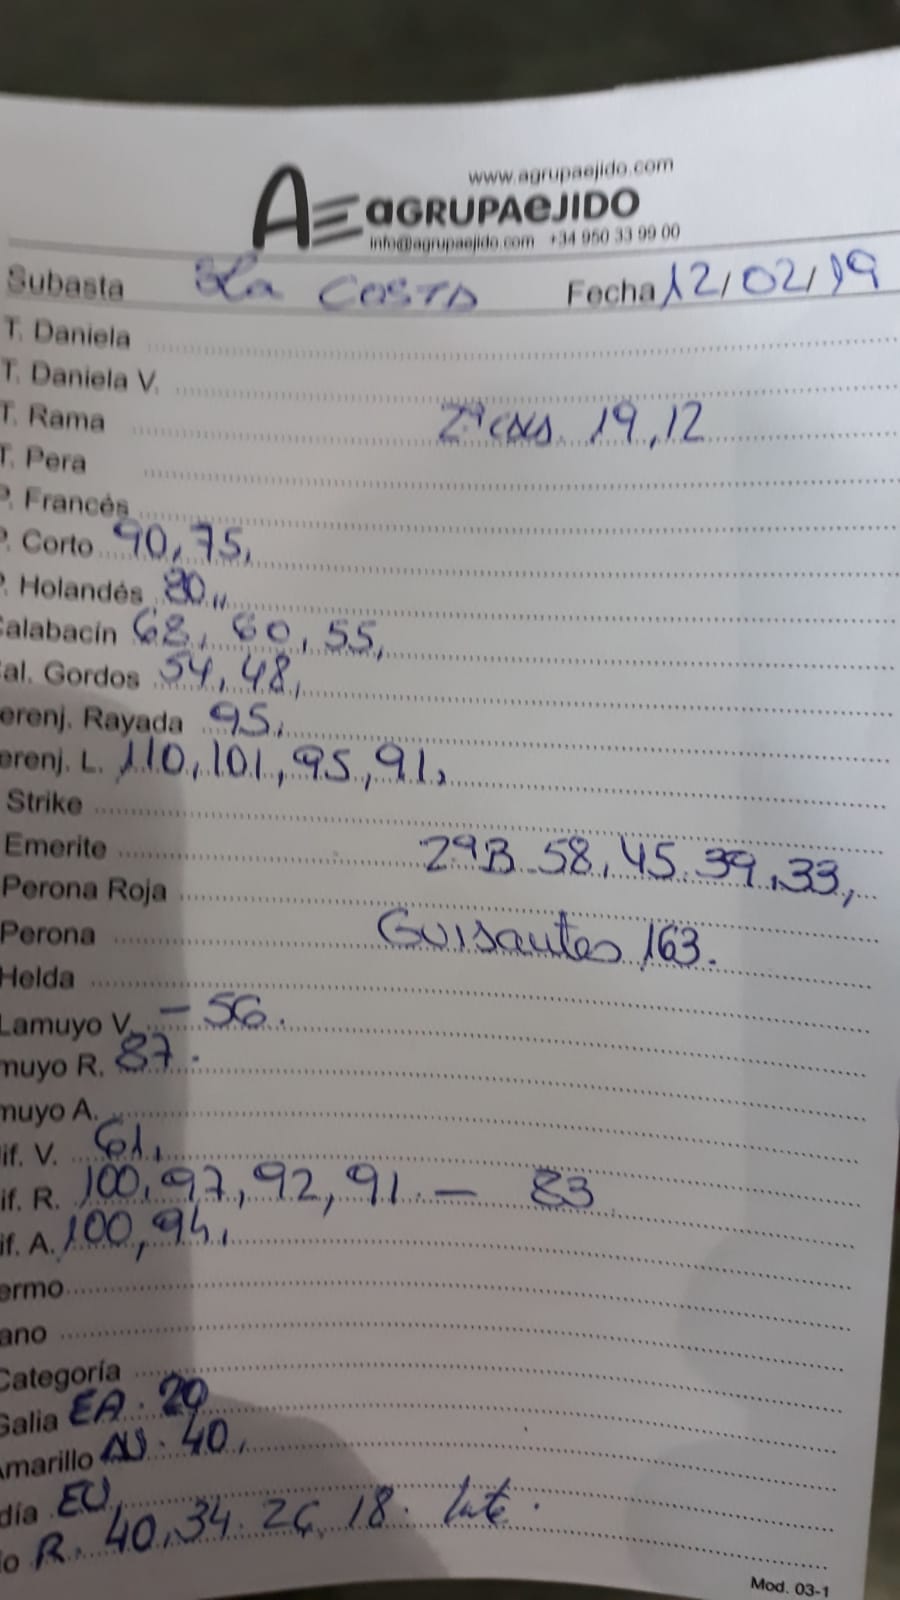 www.agrupaejido.com
AE aGRUPAeJIDO
info@agrupaejido.com +34 950 33 99 00
Subasta La COSTA Fecha 12/02/19
T. Daniela
T. Daniela V.
T. Rama 2ª cas. 19,12
T. Pera
P. Francés
P. Corto 90,75,
P. Holandés 80,,
Calabacín 68, 60, 55,
Cal. Gordos 54, 48,
erenj. Rayada 95.
erenj. L. 110, 101, 95, 91,
Strike
Emerite 2ªB 58, 45. 39, 33,
Perona Roja
Perona Guisantes 163.
Helda
Lamuyo V. - 56.
muyo R. 87.
muyo A.
if. V. 61,
if. R. 100, 97, 92, 91 - 83
if. A. 100, 94,
ermo
ano
Categoría
Galia EA. 20
Amarillo AU. 40,
día EU,
o R. 40, 34. 26, 18.
Mod. 03-1